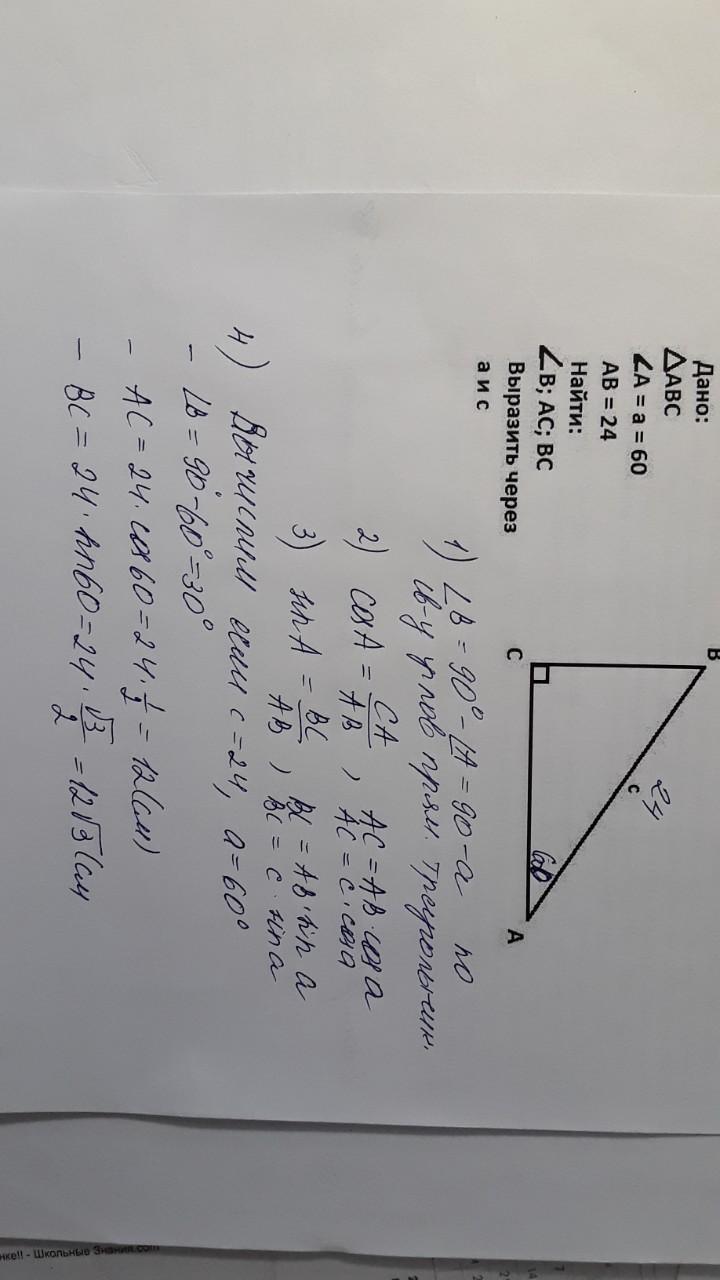 Дано:
△ABC
∠A = a = 60
AB = 24
Найти:
∠B; AC; BC
Выразить через
a и c
B
24
c
60°
C
A
1) ∠B = 90° - ∠A = 90 - a по
св-у углов прям. треугольник.
2) cosA = CA/AB , AC = AB·cos a
AC = c·cos a
3) sinA = BC/AB , BC = AB·sin a
BC = c·sin a
4) Вычислим если c = 24, a = 60°
- ∠B = 90° - 60° = 30°
- AC = 24·cos60 = 24·1/2 = 12(см)
- BC = 24·sin60 = 24·√3/2 = 12√3(см
Школьные Знания.com